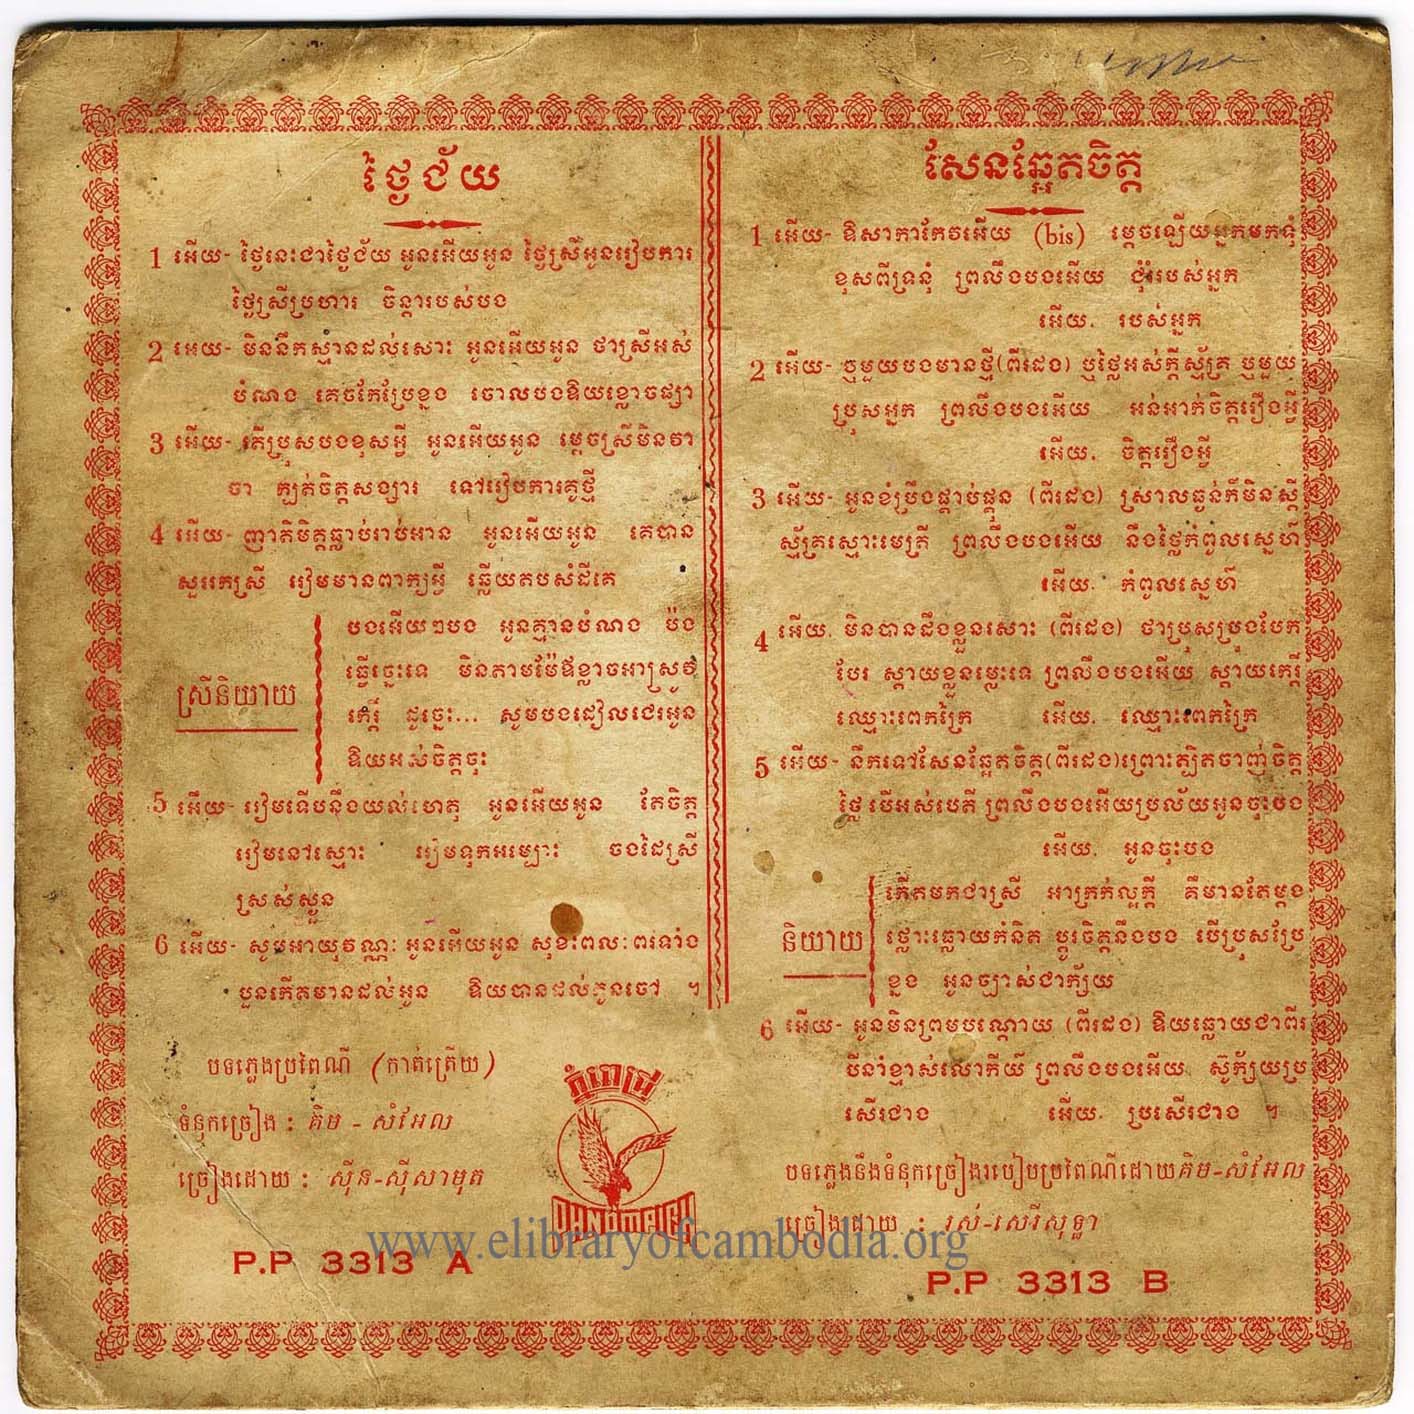 ថ្ងៃជ័យ
1 អើយ- ថ្ងៃនេះជាថ្ងៃជ័យ អូនអើយអូន ថ្ងៃស្រីអូនរៀបការ
ថ្ងៃស្រីប្រហារ ចិន្តារបស់បង
2 អេយ- មិននឹកស្មានដល់សោះ អូនអើយអូន ថាស្រីអស់
បំណង គេចកែប្រែខ្នង ចោលបងឱយខ្លោចផ្សា
3 អើយ- តើប្រុសបងខុសអ្វី អូនអើយអូន ម្តេចស្រីមិនវា
ចា ក្បត់ចិត្តសង្សារ ទៅរៀបការគូថ្មី
4 អើយ- ញាតិមិត្តធ្លាប់រាប់អាន អូនអើយអូន គេបាន
សួររកស្រី រៀមមានពាក្យអ្វី ឆ្លើយតបសំដីគេ
ស្រីនិយាយ
បងអើយៗបង អូនគ្មានបំណង ប៉ង
ធ្វើច្នេះទេ មិនតាមម៉ែឪខ្លាចអាស្រូវ
កេរ្តិ៍ ដូច្នេះ... សូមបងដៀលជេរអូន
ឱយអស់ចិត្តចុះ
5 អើយ- រៀមទើបនឹងយល់ហេតុ អូនអើយអូន តែចិត្ត
រៀមនៅស្មោះ រៀមទុកអម្បោះ ចងដៃស្រី
ស្រស់ស្ងួន
6 អើយ- សូមអាយុវណ្ណៈ អូនអើយអូន សុខៈពលៈពរទាំង
បួនកើតមានដល់អូន ឱយបានដល់កូនចៅ ។
បទភ្លេងប្រពៃណី (កាត់ត្រើយ)
ទំនុកច្រៀង : គិម - សំអែល
ច្រៀងដោយ : ស៊ីន-ស៊ីសាមុត
P.P 3313 A
ភ្នំពេជ្រ
PHNOMPICH
សែនឆ្អែតចិត្ត
1 អើយ- ឱសាកាកែវអើយ (bis) ម្តេចឡើយអ្នកមកទុំ
ខុសពីទ្រនុំ ព្រលឹងបងអើយ ជុំរំរបស់អ្នក
អើយ. របស់អ្នក
2 អើយ- ឬមួយបងមានថ្មី(ពីរដង) ឬថ្លៃអស់ក្តីស្ម័គ្រ ឬមួយ
ប្រុសអ្នក ព្រលឹងបងអើយ អន់អាក់ចិត្តរឿងអ្វី
អើយ. ចិត្តរឿងអ្វី
3 អើយ- អូនខំប្រឹងផ្គាប់ផ្គុន (ពីរដង) ស្រាលធ្ងន់ក៏មិនស្តី
ស្ម័គ្រស្មោះមេត្រី ព្រលឹងបងអើយ នឹងថ្លៃកំពូលស្នេហ៍
អើយ. កំពូលស្នេហ៍
4 អើយ. មិនបានដឹងខ្លួនសោះ (ពីរដង) ថាប្រុសប្រុងបែក
បែរ ស្តាយខ្លួនម្លេះទេ ព្រលឹងបងអើយ ស្តាយកេរ្តិ៍
ឈ្មោះពេកក្រៃ អើយ. ឈ្មោះពេកក្រៃ
5 អើយ- នឹកទៅសែនឆ្អែតចិត្ត(ពីរដង)ព្រោះត្បិតចាញ់ចិត្ត
ថ្លៃ បើអស់បេតី ព្រលឹងបងអើយប្រល័យអូនចុះបង
អើយ. អូនចុះបង
និយាយ
កើតមកជាស្រី អាក្រក់ល្អក្តី គឺមានតែម្តង
ថ្លោះធ្លោយគំនិត ប្តូរចិត្តនឹងបង បើប្រុសប្រែ
ខ្នង អូនច្បាស់ជាក្ស័យ
6 អើយ- អូនមិនព្រមបណ្តោយ (ពីរដង) ឱយធ្លោយជាពីរ
បីនាំខ្មាស់លោកីយ៍ ព្រលឹងបងអើយ. ស៊ូក្ស័យប្រ
សើរជាង អើយ. ប្រសើរជាង ។
បទភ្លេងនឹងទំនុកច្រៀងរបៀបប្រពៃណីដោយគិម-សំអែល
ច្រៀងដោយ : រស់-សេរីសុទ្ធា
P.P 3313 B
www.elibraryofcambodia.org